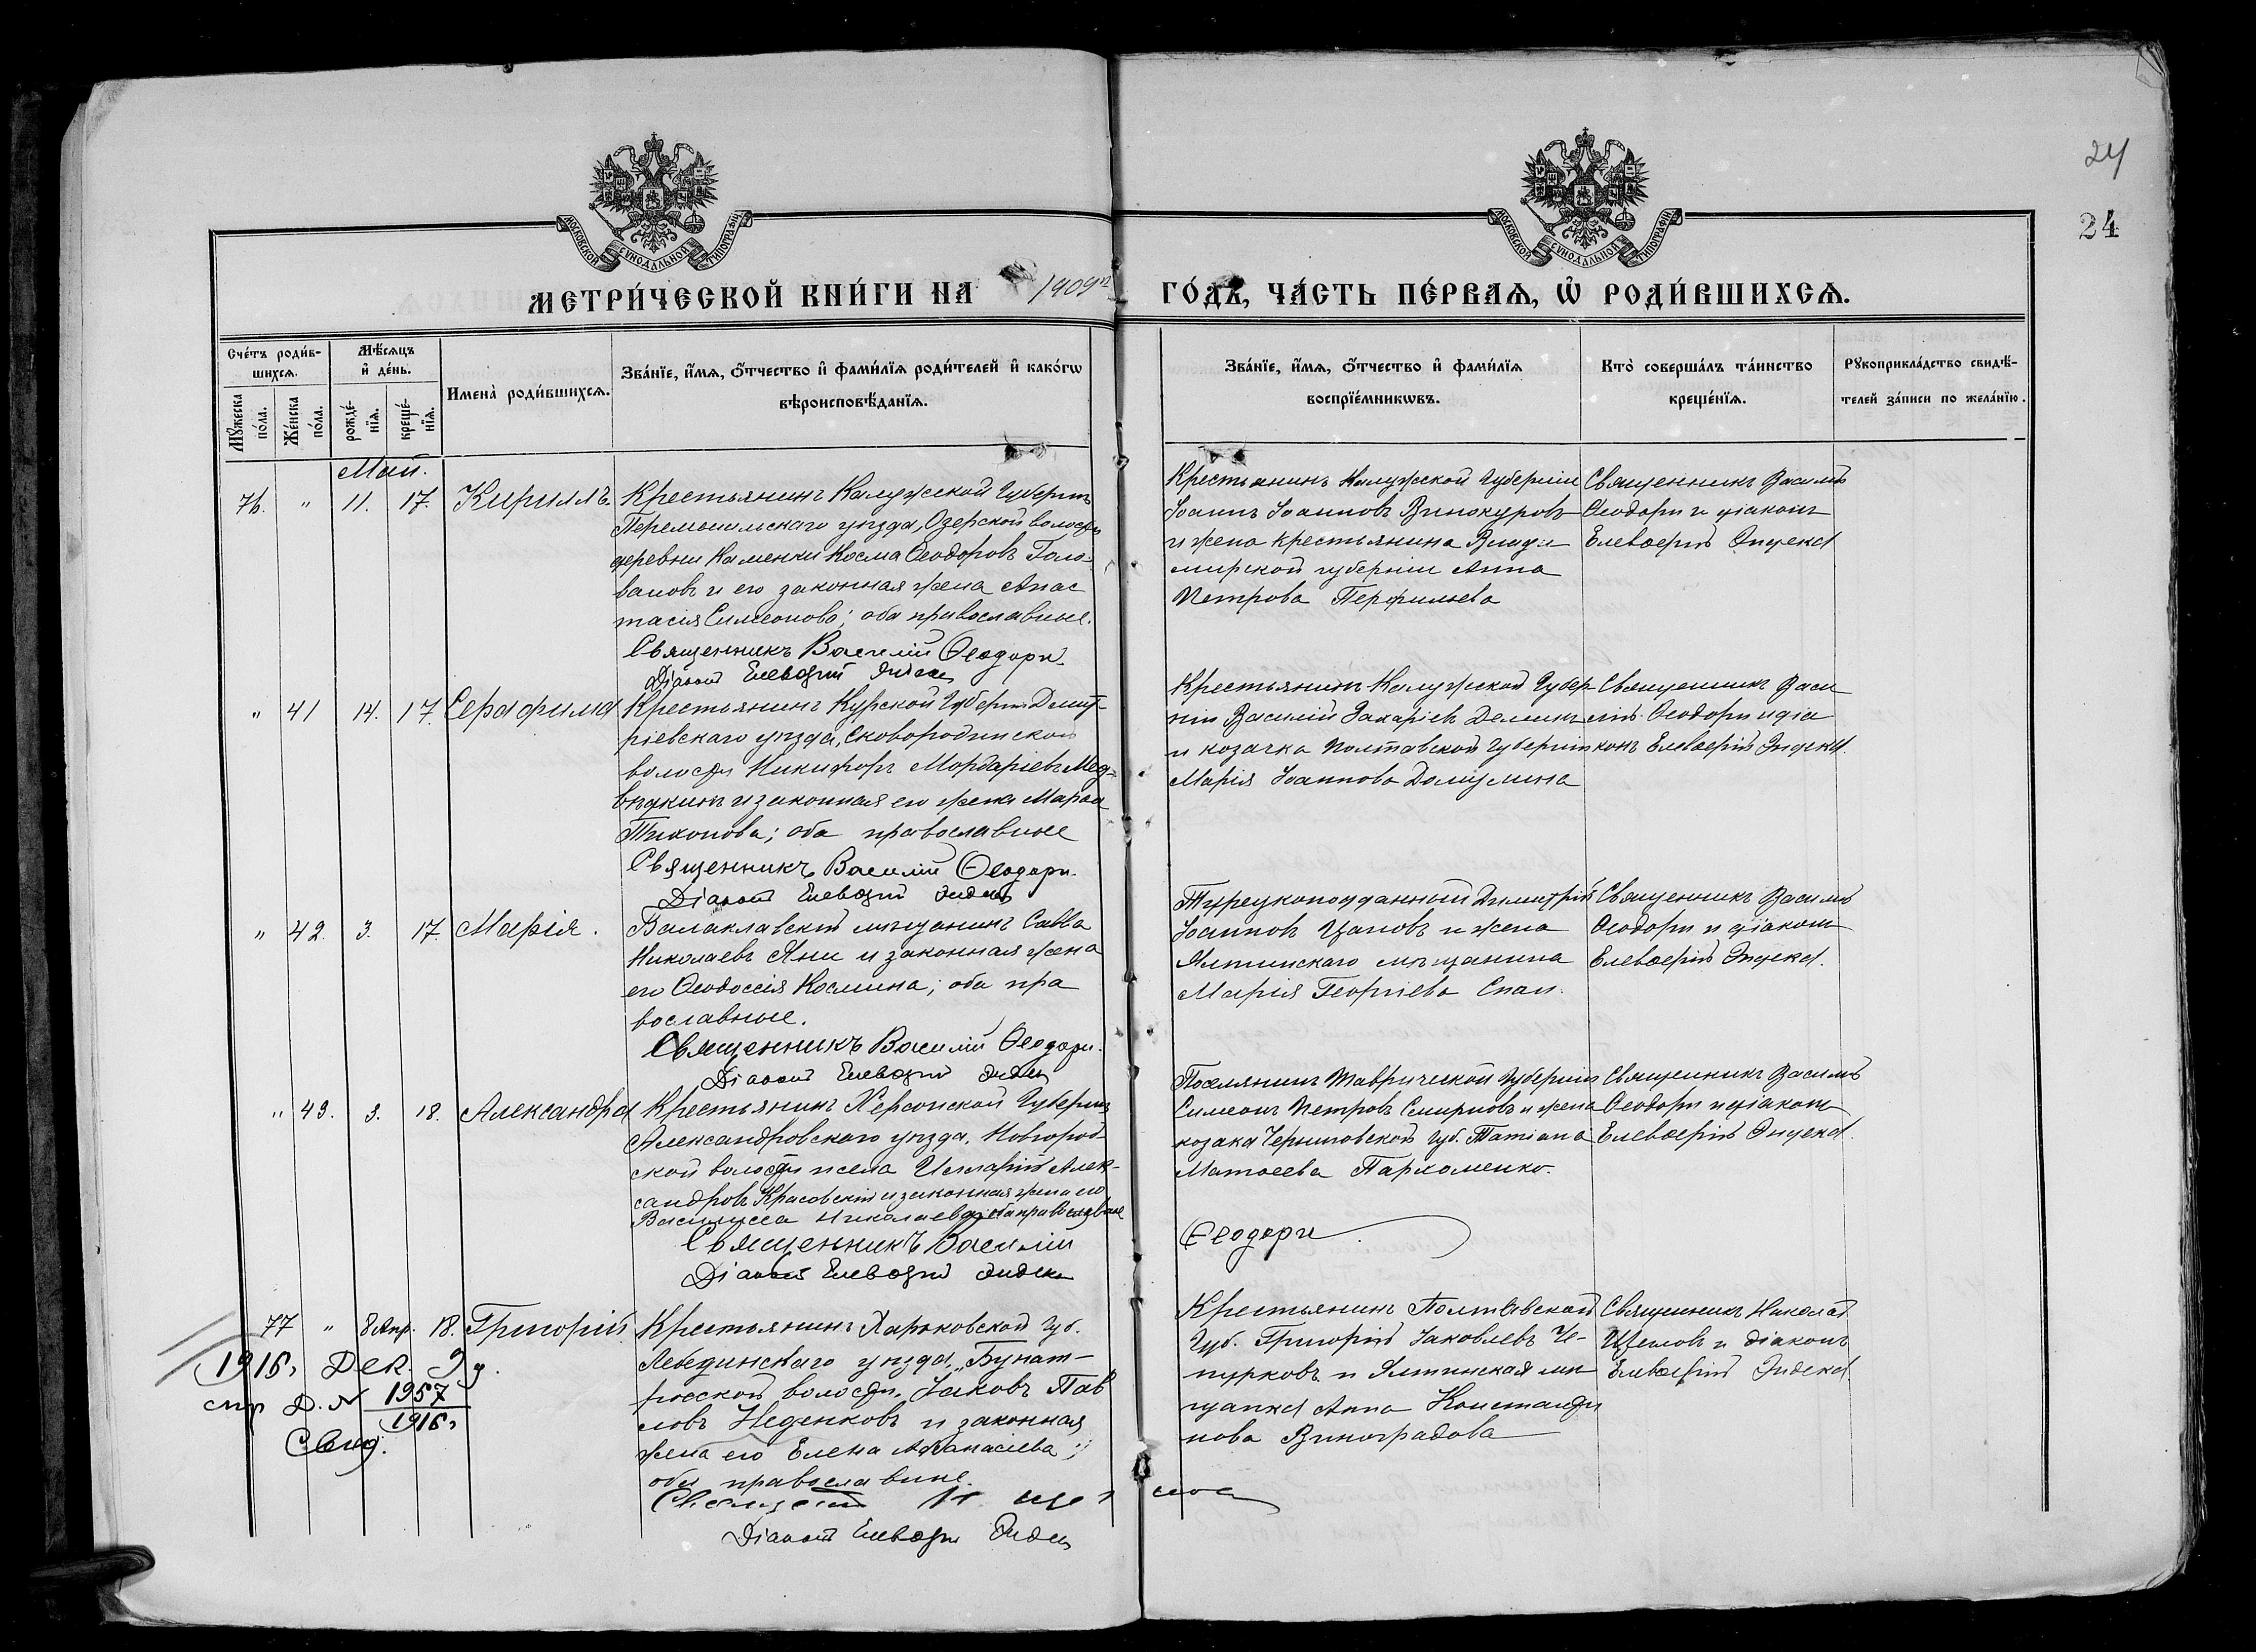 24
24
МОСКОВСКОЙ СѴНОДАЛЬНОЙ ТИПОГРАФІИ
МОСКОВСКОЙ СѴНОДАЛЬНОЙ ТИПОГРАФІИ
МЕТРИ́ЧЕСКОЙ КНИ́ГИ НА 1909й ГО́ДЪ, ЧА́СТЬ ПЕ́РВАѦ, Ѡ҆ РОДИ́ВШИХСѦ.
Сче́тъ роди́в-
шихсѧ.
Мѣ́сѧцъ
и҆ де́нь.
Мꙋ́жеска
по́ла.
Же́нска
по́ла.
рожде́-
нїѧ.
креще́-
нїѧ.
Имена̀ роди́вшихсѧ.
Зва́нїе, и҆́мѧ, ѻ҆́тчество и҆ фами́лїѧ роди́телей и҆ како́гѡ
вѣроисповѣ́данїѧ.
Зва́нїе, и҆́мѧ, ѻ҆́тчество и҆ фами́лїѧ
воспрїе́мникѡвъ.
Кто̀ соверша́лъ та́инство
креще́нїѧ.
Рꙋкоприкла́дство свидѣ́-
телей за́писи по жела́нїю.
Май.
76. " 11. 17. Кириллъ.
Крестьянинъ Калужской Губерніи
Перемышльскаго уѣзда, Озерской волости
деревни Каменки Косма Ѳеодоровъ Голо-
вановъ и его законная жена Анас
тасія Симеонова; оба православные.
Священникъ Василій Ѳеодори
Діаконъ Елевѳерій Эндека
Крестьянинъ Калужской Губерніи
Іоаннъ Іоанновъ Винокуровъ
и жена крестьянина Влади
мирской губерніи Анна
Петрова Перфильева
Священникъ Василій
Ѳеодори и діаконъ
Елевѳерій Эндека
" 41 14. 17. Серафима
Крестьянинъ Курской Губерніи Дмит-
ріевскаго уѣзда, Сковороднинской
волости Никифоръ Мордаріевъ Мед-
вѣдкинъ и законная его жена Марѳа
Тихонова; оба православные
Священникъ Василій Ѳеодори.
Діаконъ Елевѳерій Эндека
Крестьянинъ Калужской Губер-
ніи Василій Захаріевъ Деминъ
и козачка Полтавской Губерніи
Марія Іоаннова
Священникъ Васи
лій Ѳеодори и діа
конъ Елевѳерій Эндека.
" 42. 3. 17. Марія.
Балаклавскій мѣщанинъ Савва
Николаевъ Яни и законная жена
его Ѳеодосія Космина; оба пра
вославные.
Священникъ Василій Ѳеодори.
Діаконъ Елевѳерій Эндека
Турецкоподданный Димитрій
Іоанновъ Цановъ и жена
Ялтинскаго мѣщанина
Марія Георгіева
Священникъ Василій
Ѳеодори и діаконъ
Елевѳерій Эндека.
" 43. 3. 18. Александра
Крестьянинъ Херсонской Губерніи
Александровскаго уѣзда, Новгород-
ской волости и села Илларій Алек-
сандровъ Красовскій и законная жена его
Василисса Николаева; оба православные
Священникъ Василій
Ѳеодори
Діаконъ Елевѳерій Эндека
Поселянинъ Таврической Губерніи
Симеонъ Петровъ Смирновъ и жена
козака Черниговской Губ. Татіана
Матѳеева Пархоменко.
Священникъ Василій
Ѳеодори и діаконъ
Елевѳерій Эндека.
77 " 8 Апр. 18. Григорій
Крестьянинъ Харьковской Губ.
Лебединскаго уѣзда,
волости, Іаковъ Пав
ловъ Неденковъ и законная
жена его Елена Аѳанасіева;
оба православные.
Діаконъ Елевѳерій Эндека
Крестьянинъ Полтавской
Губ. Григорій Іаковлевъ Че-
пурковъ и Ялтинская мѣ
щанка Анна Константи
нова Виноградова
Священникъ Николай
Щегловъ и діаконъ
Елевѳерій Эндека
1916г Дек. 9 д.
Д. № 1957
1916г
Свид.